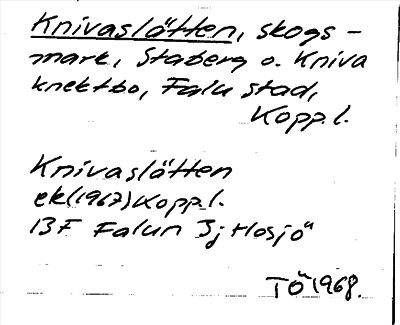 Knivaslätten, skogs-
mark, Staberg o. Kniva
knektbo, Falu stad,
Kopp.l.
Knivaslätten
ek(1967)Kopp.l.
13F Falun 3j Hosjö
TÖ 1968.